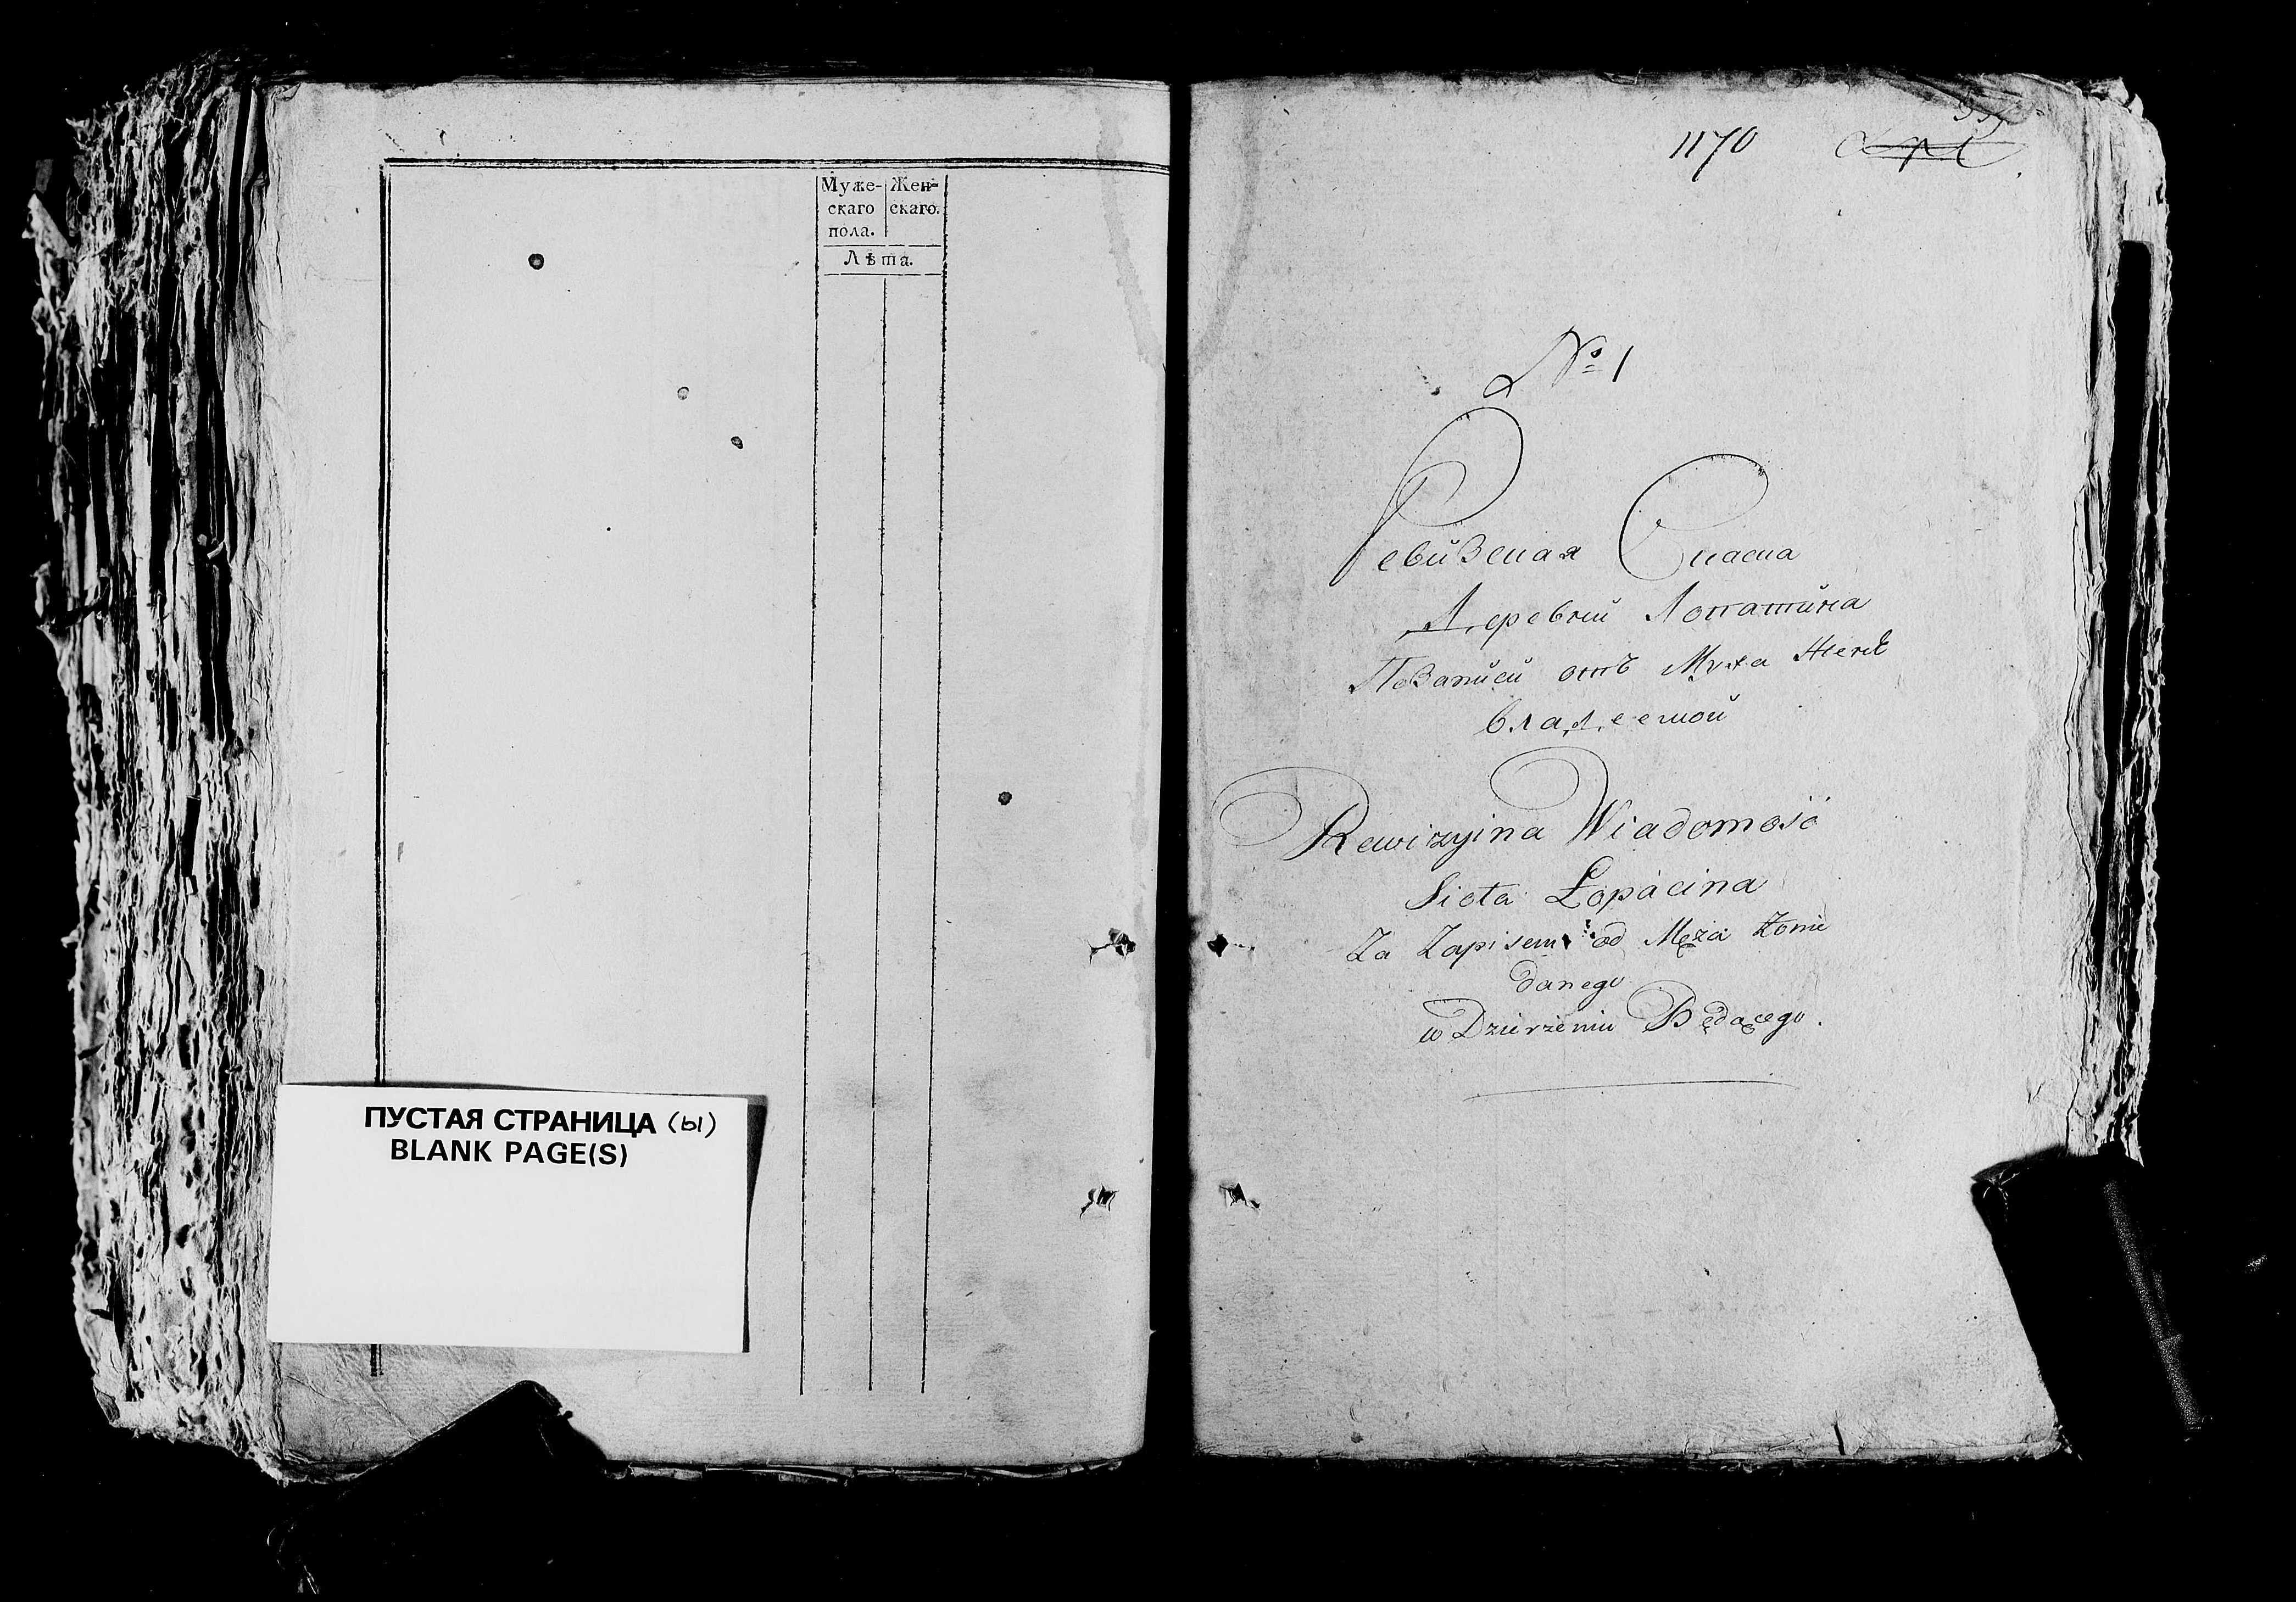 Муже- Жен-
скаго скаго.
пола.
Лѣта.
ПУСТАЯ СТРАНИЦА (ы)
BLANK PAGE(S)
1170
№ 1
Ревизская Скаска
Деревни Лопатина
По записи отъ Мужа Женѣ
владеемой
Rewizyina Wiadomość
Sioła Łopacina
Za Zapisem od Męża Żonie
danego
w Dzierżeniu Będącego.